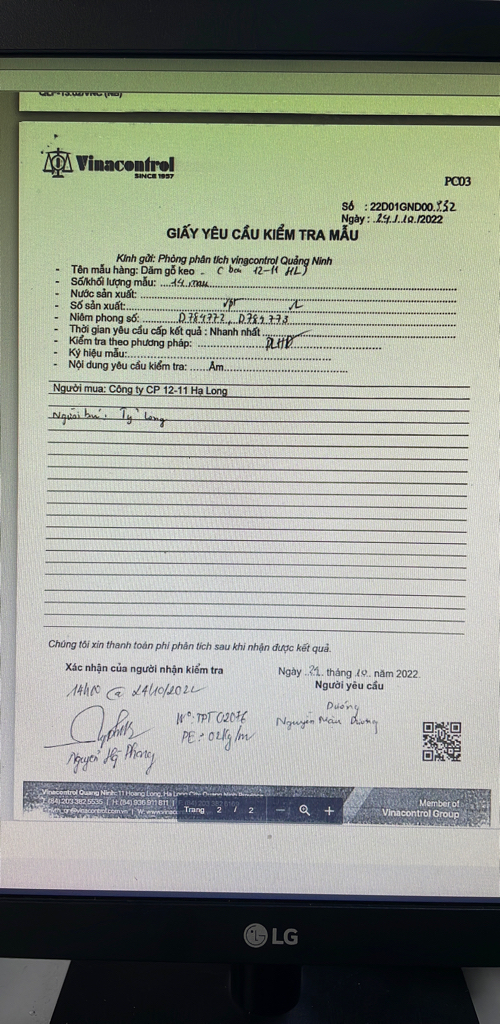 Vinacontrol
SINCE 1957
PC03
Số : 22D01GND00.932
Ngày : .24./.10./2022
GIẤY YÊU CẦU KIỂM TRA MẪU
Kính gửi: Phòng phân tích vinacontrol Quảng Ninh
- Tên mẫu hàng: Dăm gỗ keo - ( 12-11 HL)
- Số/khối lượng mẫu: 14 mau
- Nước sản xuất:
- Số sản xuất:
- Niêm phong số: D784772, D784773
- Thời gian yêu cầu cấp kết quả : Nhanh nhất
- Kiểm tra theo phương pháp:
- Ký hiệu mẫu:
- Nội dung yêu cầu kiểm tra: .....Ẩm
Người mua: Công ty CP 12-11 Hạ Long
Người bán: Tỷ Long
Chúng tôi xin thanh toán phí phân tích sau khi nhận được kết quả.
Xác nhận của người nhận kiểm tra
Ngày .24. tháng .10. năm 2022
Người yêu cầu
14h00 @ 24/10/2022
Nº: TPT 02076
PE: 02kg/m
Dương
Nguyễn Dương
Nguyễn Phong
Vinacontrol Quảng Ninh: 11 Hoàng Long, Hạ Long City, Quang Ninh
(84) 203 382 5535 | H: (84) 936 811 811 |
Trang 2 / 2 − +
Member of
Vinacontrol Group
LG